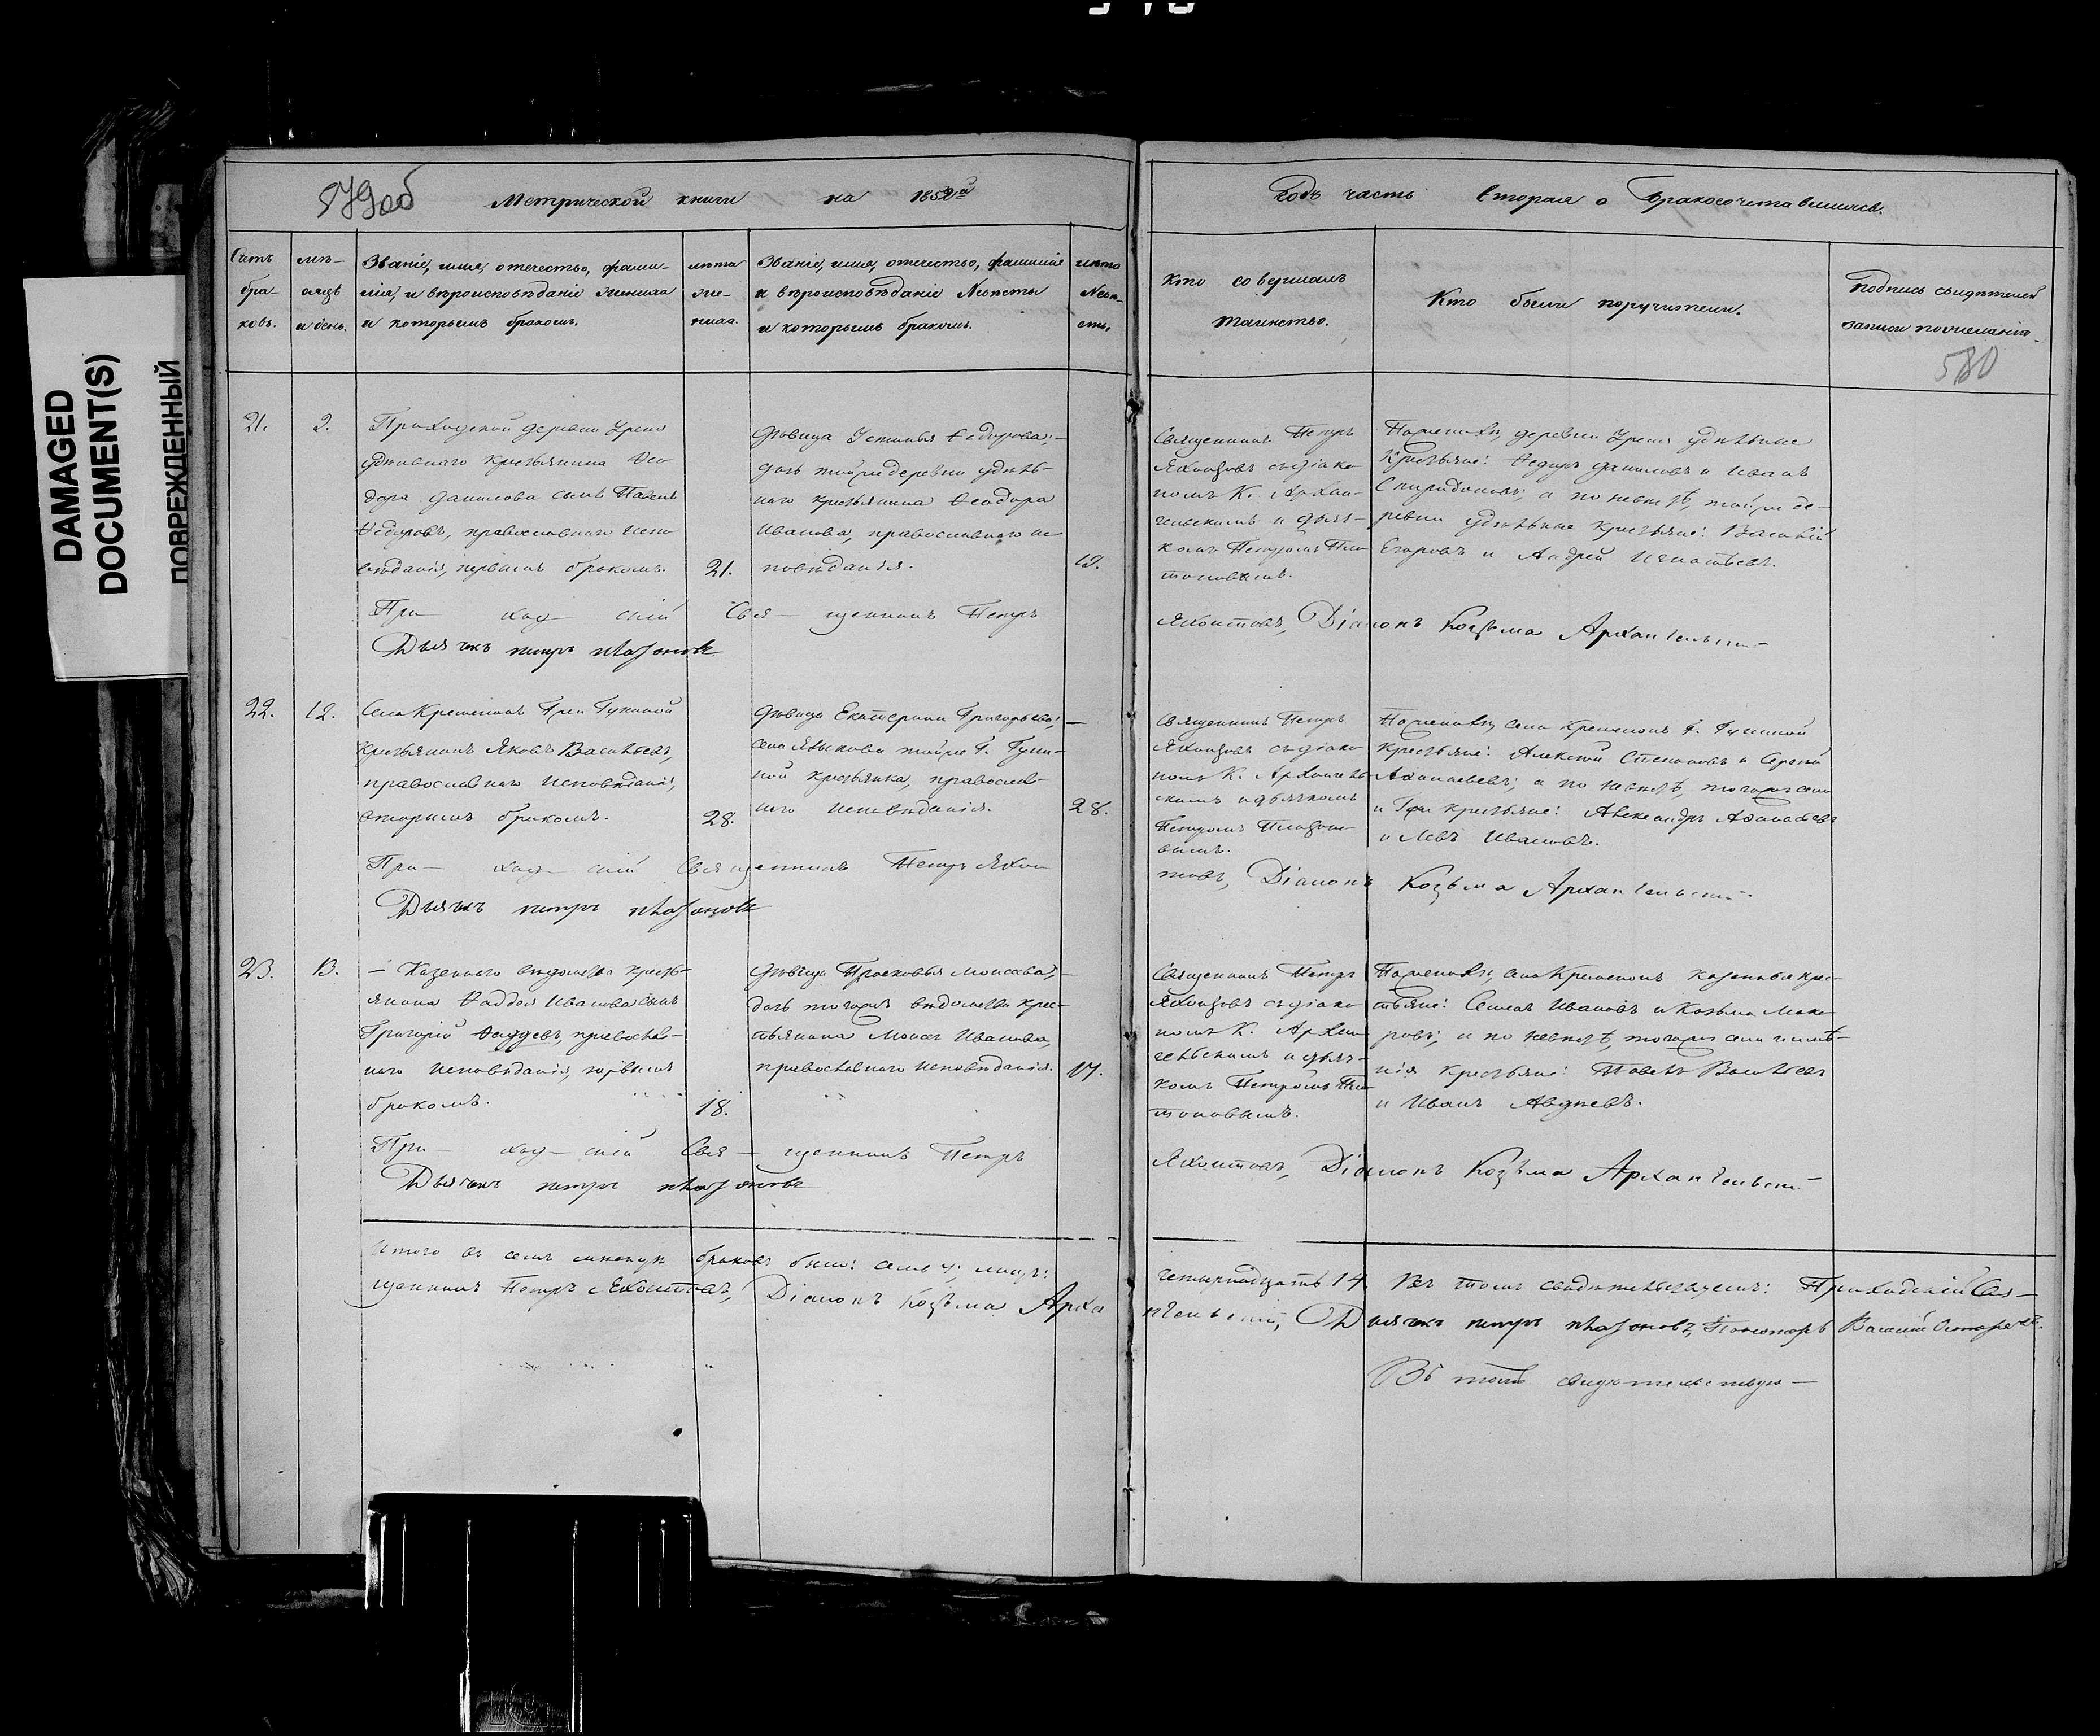 DAMAGED
DOCUMENT(S)
ПОВРЕЖДЕННЫЙ
579об
Метрической книги на 1852й
Годъ часть вторая о бракосочетавшихся.
Счетъ
бра-
ковъ.
мѣ-
сяцъ
и день.
Званіе, имя, отечество, фами-
лія, и вѣроисповѣданіе жениха
и которымъ бракомъ.
лѣта
же-
ниха.
Званіе, имя, отечество, фамилія
и вѣроисповѣданіе Невѣсты
и которымъ бракомъ.
лѣта
Невѣ-
сты
Кто совершалъ
таинство.
Кто были поручители.
Подпись свидѣтелей
записи по желанію.
580
21.
2.
Приходской деревни
удѣльнаго крестьянина Фео
дора Данилова сынъ
Ѳедоровъ, православнаго испо
вѣданія, первымъ бракомъ.
21.
Дѣвица Устинья Ѳедорова,
дочь той же деревни удѣль-
наго крестьянина Ѳеодора
Иванова, православнаго ис
повѣданія.
19.
Священникъ Петръ
Яхонтовъ съ діако
номъ К. Архан-
гельскимъ и дьяч-
комъ Петромъ Пла
тоновымъ.
деревни удѣльные
крестьяне: Ѳедоръ Даниловъ и Иванъ
Спиридоновъ; а по невѣстѣ, той же де-
ревни удѣльные крестьяне: Василій
Егоровъ и Андрей Игнатьевъ.
При- ход- скій Свя- щенникъ Петръ
Яхонтовъ, Діаконъ Козьма Архангельскій
Дьячокъ петръ платоновъ
22.
12.
Села Кременокъ Г-жи
крестьянинъ Яковъ Васильевъ,
православнаго исповѣданія,
вторымъ бракомъ.
28.
Дѣвица Екатерина Григорьева,
села Языкова той же Г.
крестьянка, православ-
наго исповѣданія.
28.
Священникъ Петръ
Яхонтовъ съ діако
номъ К. Архангель
скимъ и дьячкомъ
Петромъ Платоно
вымъ.
села Кременокъ Г.
крестьяне: Алексѣй Степановъ и Сергѣй
Аѳанасьевъ; а по невѣстѣ, того же села
и Г-жи крестьяне: Александръ Аѳанасьевъ
и Левъ Ивановъ.
При- ход- скій Священникъ Петръ Яхон
товъ, Діаконъ Козьма Архангельскій
Дьячокъ петръ платоновъ
23.
13.
- Казеннаго вѣдомства кресть-
янина Ѳаддея Иванова сынъ
Григорій Ѳаддеевъ, православ-
наго исповѣданія, первымъ
бракомъ.
18.
Дѣвица Прасковья Моисеева,
дочь того же вѣдомства крес-
тьянина Моисея Иванова,
православнаго исповѣданія.
17.
Священникъ Петръ
Яхонтовъ съ діако
номъ К. Архан
гельскимъ и дьяч-
комъ Петромъ Пла
тоновымъ.
села Кременокъ казенные крес-
тьяне: Семенъ Ивановъ и Козьма Мака
ровъ; а по невѣстѣ, того же села и имѣ-
нія крестьяне: Павелъ Васильевъ
и Иванъ Авдѣевъ.
При- ход- скій Свя- щенникъ Петръ
Яхонтовъ, Діаконъ Козьма Архангельскій
Дьячокъ петръ платоновъ
Итого въ семъ мѣсяцѣ браковъ было: семь 7; лицъ: четырнадцать 14. Въ томъ свидѣтельствуемъ: Приходскій Свя-
щенникъ Петръ Яхонтовъ, Діаконъ Козьма Архангельскій, Дьячокъ петръ платоновъ, Пономарь Василій
Въ томъ свидѣтельствую